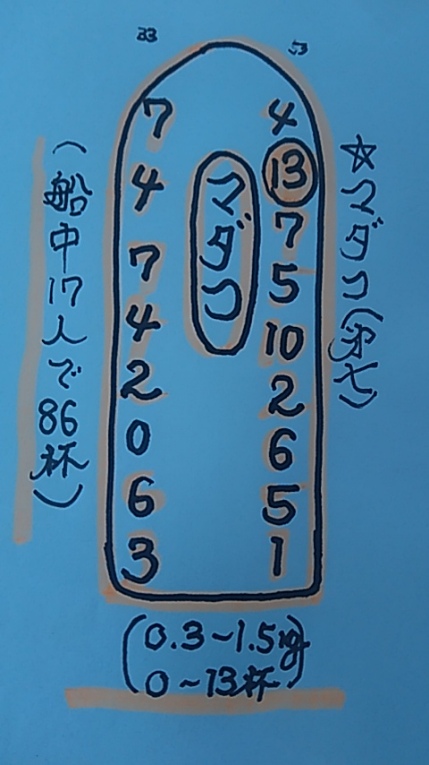 33 53
7 4
4 13
7 7
4 5
2 10
0 2
6 6
3 5
1
マダコ
☆マダコ(第七)
(船中17人で86杯)
(0.3~1.5kg
0~13杯)